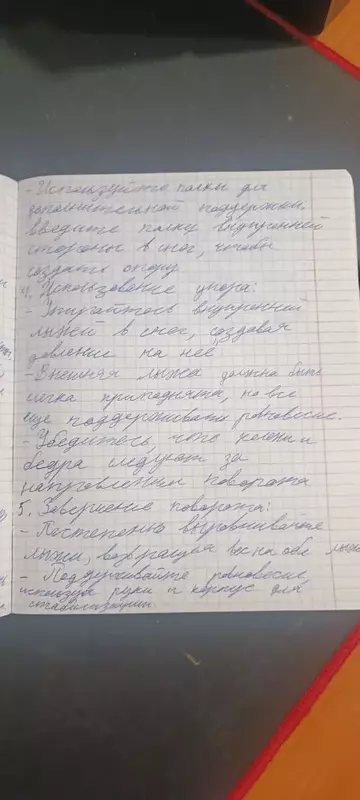 - Используйте палки для
дополнительной поддержки.
введите палку внутренней
стороны в снег, чтобы
создать опору
4, Использование упора:
- Упирайтесь внутренней
лыжей в снег, создавая
давление на неё
- Внешняя лыжа должна быть
легка приподнята, но все
еще поддерживать равновесие.
- Убедитесь, что колени и
бедра следуют за
направлением поворота
5. Завершение поворота:
- Постепенно выравнивайте
лыжи, возвращая на обе лыжи
- Поддерживайте равновесие,
используя руки и корпус для
стабилизации